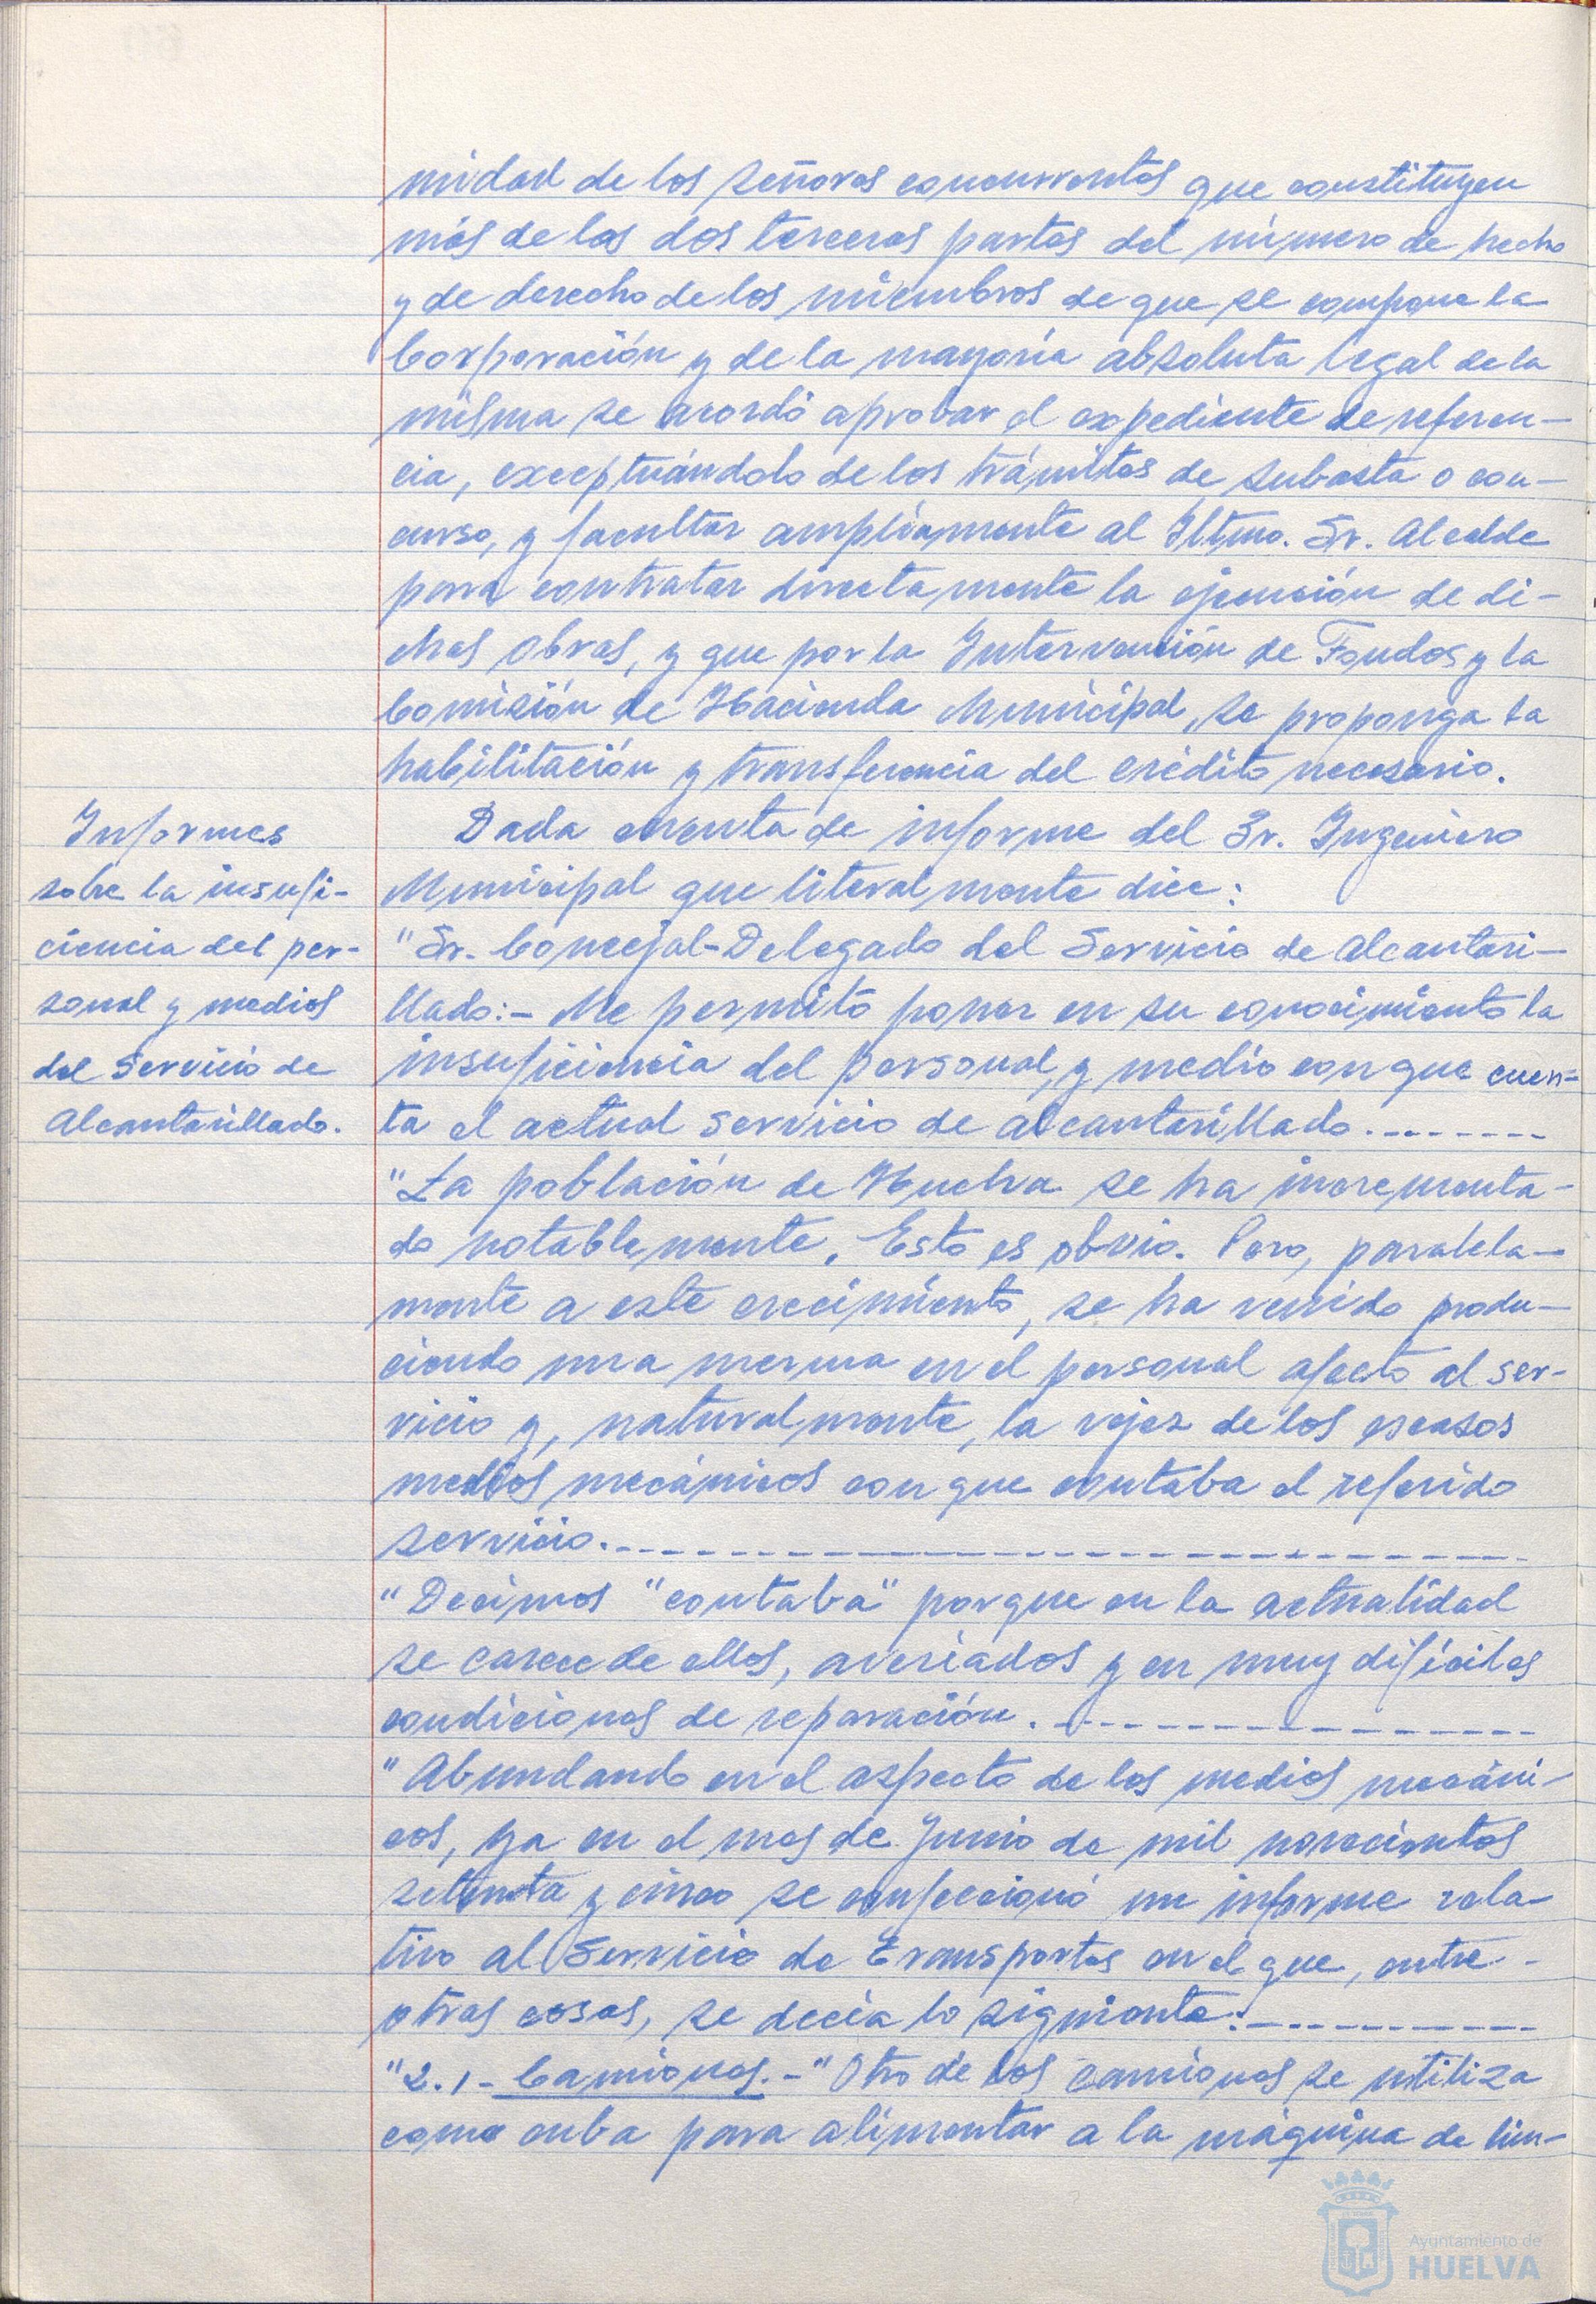 midad de los señores concurrentes que constituyen
más de las dos terceras partes del número de hecho
y de derecho de los miembros de que se compone la
Corporación y de la mayoría absoluta legal de la
misma se acordó aprobar el expediente de referen-
cia, exceptuándolo de los trámites de subasta o con-
curso, y facultar ampliamente al Iltmo. Sr. Alcalde
para contratar directamente la ejecución de di-
chas obras, y que por la Intervención de Fondos y la
Comisión de Hacienda Municipal, se proponga la
habilitación y transferencia del crédito necesario.
Informes
sobre la insufi-
ciencia del per-
sonal y medios
del Servicio de
Alcantarillado.
Dada cuenta de informe del Sr. Ingeniero
Municipal que literalmente dice:
"Sr. Concejal-Delegado del Servicio de Alcantari-
llado:- Me permito poner en su conocimiento la
insuficiencia del personal, y medio con que cuen-
ta el actual servicio de alcantarillado.--------
"La población de Huelva se ha incrementa-
do notablemente. Esto es obvio. Pero, paralela-
mente a este crecimiento, se ha venido produ-
ciendo una merma en el personal afecto al ser-
vicio y, naturalmente, la vejez de los escasos
medios mecánicos con que contaba el referido
servicio.----------------------------
"Decimos "contaba" porque en la actualidad
se carece de ellos, averiados y en muy difíciles
condiciones de reparación.----------------
"Abundando en el aspecto de los medios mecáni-
cos, ya en el mes de Junio de mil novecientos
setenta y cinco se confeccionó un informe rela-
tivo al Servicio de Transportes en el que, entre-
otras cosas, se decía lo siguiente:-----------
"2.1- Camiones.-"Otro de los camiones se utiliza
como cuba para alimentar a la máquina de lim-
Ayuntamiento de
HUELVA